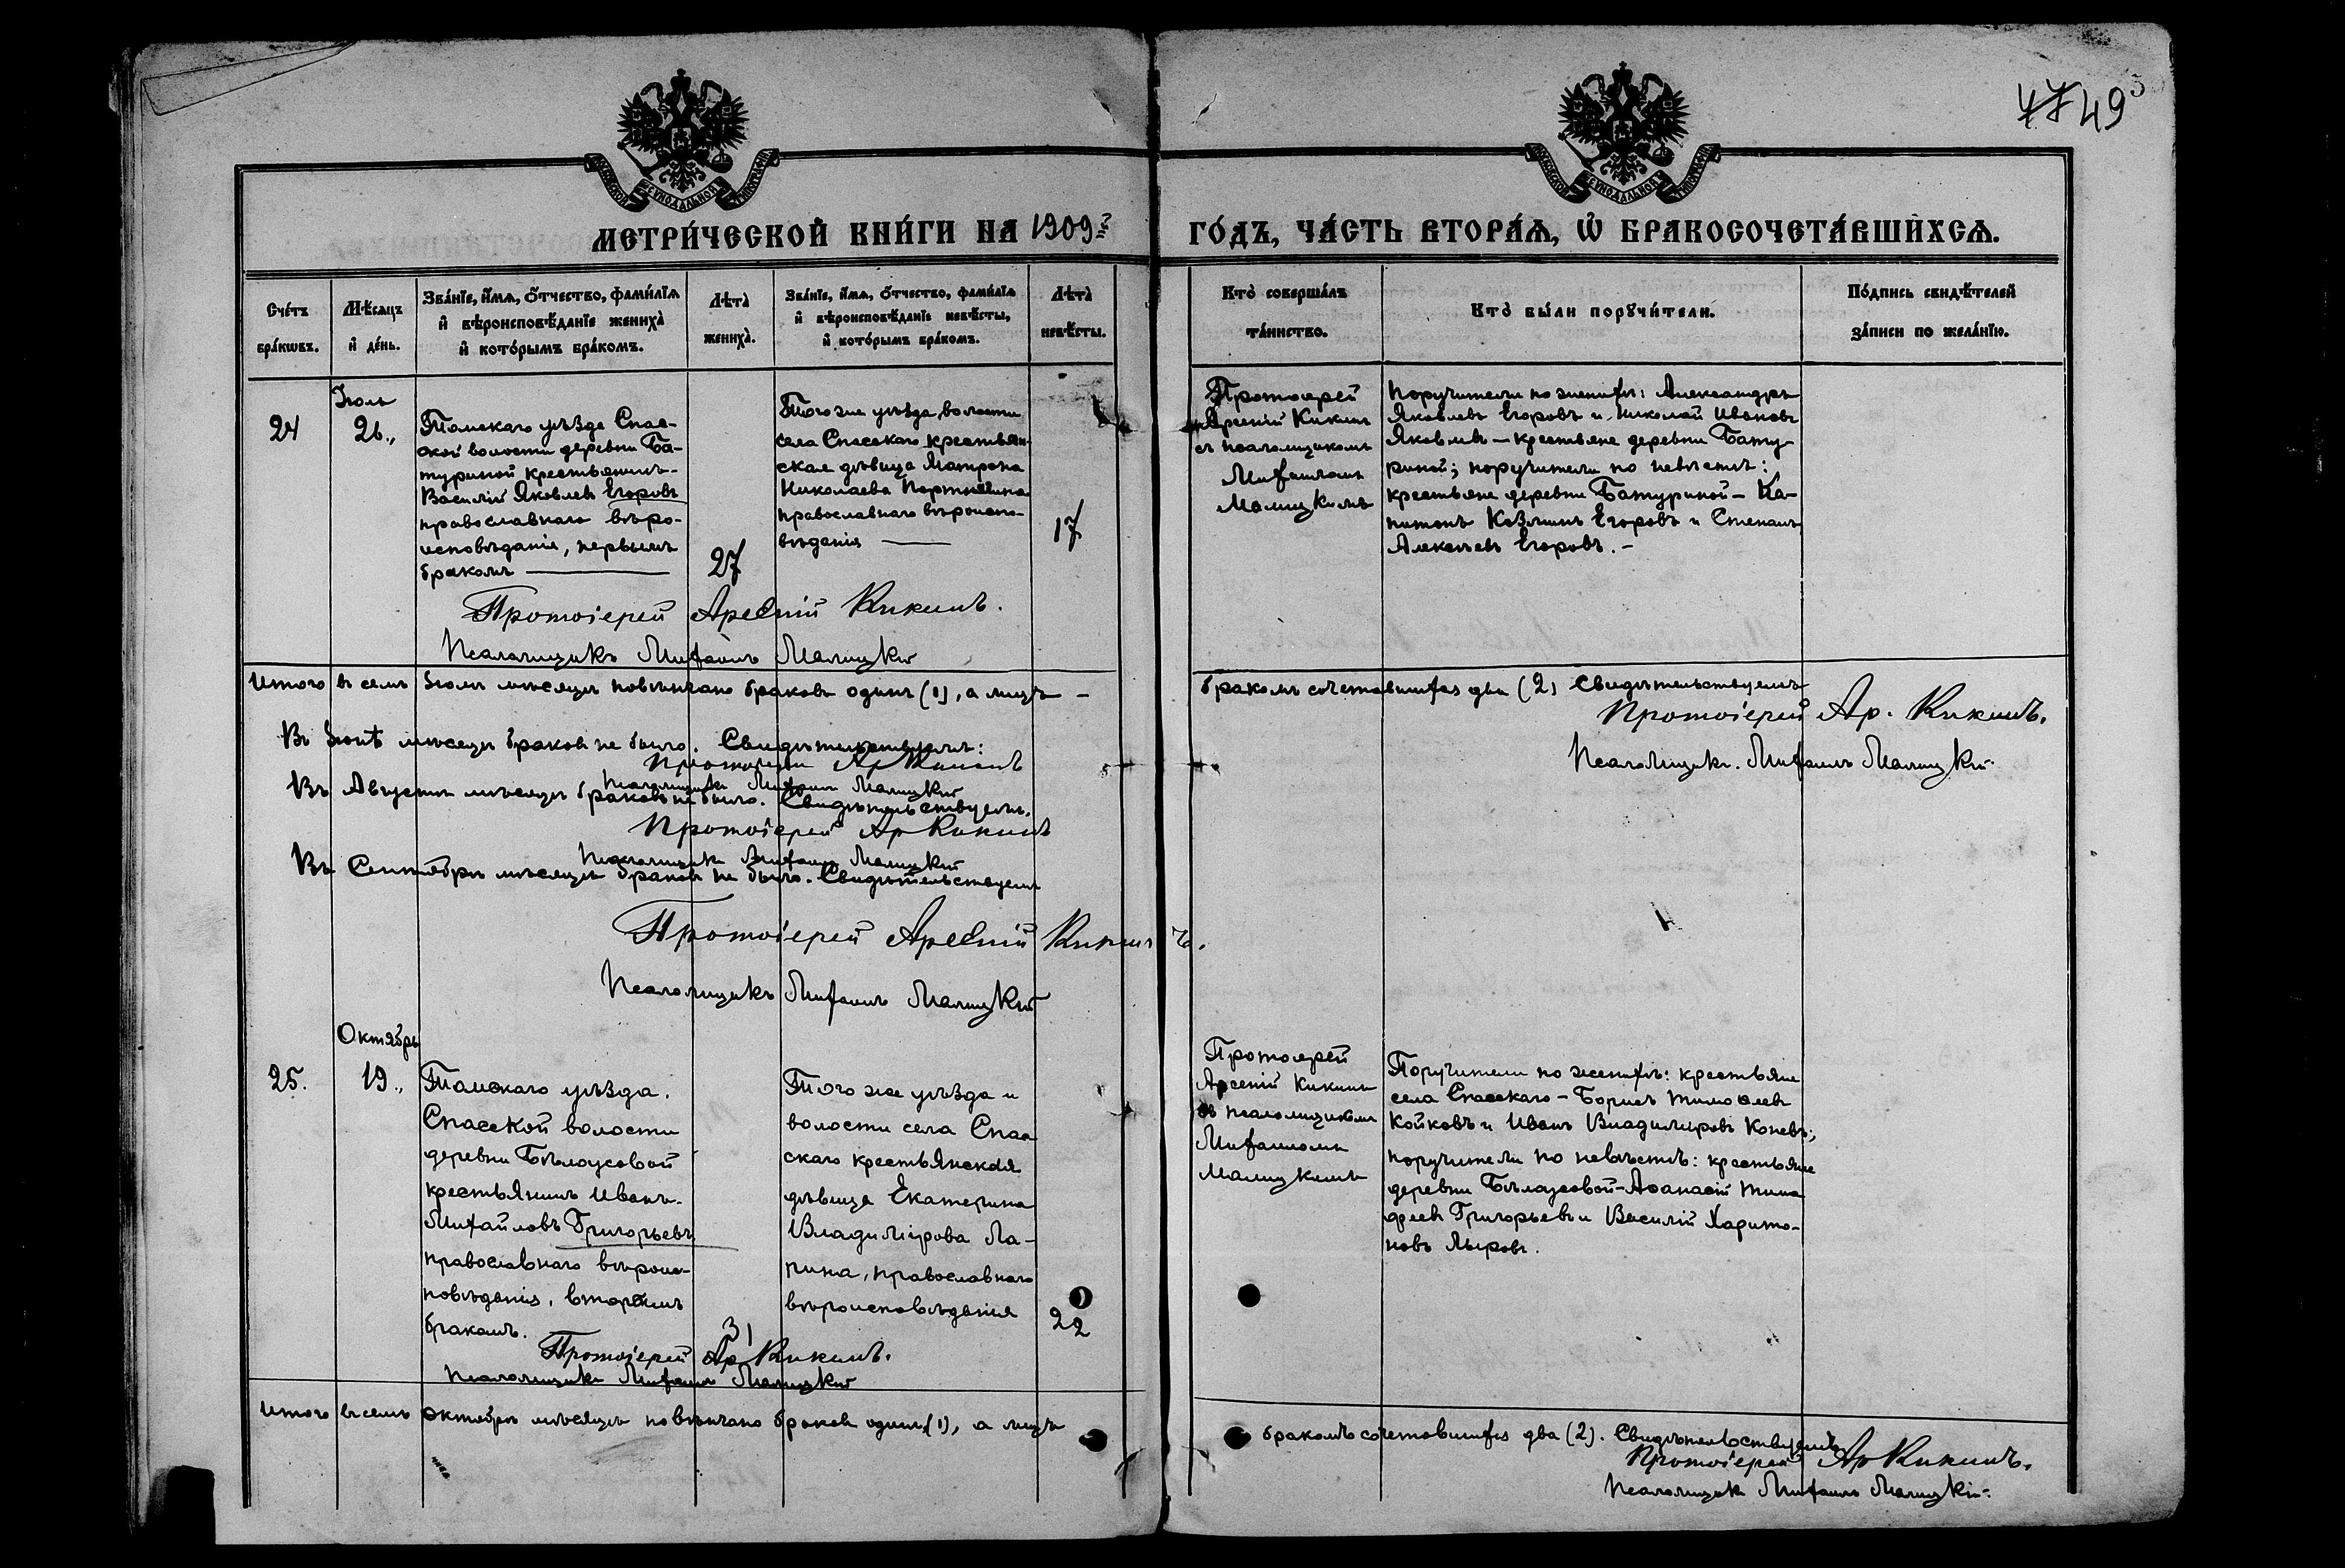 47 49
МЕТРИ́ЧЕСКОЙ КНИ́ГИ НА 1909 ГО́ДЪ, ЧА́СТЬ ВТОРА́Ѧ, Ѡ БРАКОСОЧЕТА́ВШИХСѦ.
Сче́тъ
бра́кѡвъ.
Мѣ́сѧцъ
и҆ де́нь.
Зва́нїе, и҆́мѧ, о҆́тчество, фами́лїѧ
и҆ вѣроисповѣ́данїе жениха̀
и҆ кото́рымъ бра́комъ.
Лѣта̀
жениха̀.
Зва́нїе, и҆́мѧ, о҆́тчество, фами́лїѧ
и҆ вѣроисповѣ́данїе невѣ́сты,
и҆ кото́рымъ бра́комъ.
Лѣта̀
невѣ́сты.
Кто̀ соверша́лъ
та́инство.
Кто̀ бы́ли порꙋчи́тели.
По́дпись свидѣ́телей
за́писи по жела́нїю.
24
26.
Томскаго уѣзда Спас-
ской волости деревни Ба-
туриной крестьянинъ-
Василій Яковлевъ Егоровъ
православнаго вѣро-
исповѣданія, первымъ
бракомъ
27
Того же уѣзда, волости
села Спасскаго крестьян-
ская дѣвица Матрона
Николаева
православнаго вѣроиспо-
вѣданія
17
Протоіерей
Арсеній Кикинъ
съ псаломщикомъ
Михаиломъ
Малицкимъ
Поручители по женихѣ: Александръ
Яковлевъ Егоровъ и Николай Ивановъ
Яковлевъ - крестьяне деревни Бату-
риной; поручители по невѣстѣ:
крестьяне деревни Батуриной - Ка-
питонъ Козминъ Егоровъ и Степанъ
Алексѣевъ Егоровъ. -
Протоіерей Арсеній Кикинъ.
Псаломщикъ Михаилъ Малицкій
Итого въ семъ мѣсяцѣ повѣнчано браковъ одинъ (1), а лицъ -
бракомъ сочетавшихся два (2) Свидѣтельствуемъ
Протоіерей Ар. Кикинъ.
Псаломщикъ. Михаилъ Малицкій
Въ мѣсяцѣ браковъ не было. Свидѣтельствуемъ:
Протоіерей Ар Кикинъ
Псаломщикъ Михаилъ Малицкій
Въ Августѣ мѣсяцѣ браковъ не было. Свидѣтельствуемъ.
Протоіерей Ар Кикинъ
Псаломщикъ Михаилъ Малицкій
Въ Сентябрѣ мѣсяцѣ браковъ не было. Свидѣтельствуемъ
Протоіерей Арсеній Кикинъ.
Псаломщикъ Михаилъ Малицкій
Октябрь
25.
19.
Томскаго уѣзда.
Спасской волости
деревни Бѣлоусовой
крестьянинъ Иванъ-
Михайловъ Григорьевъ
православнаго вѣроис-
повѣданія, вторымъ
бракомъ.
31
Того же уѣзда и
волости села Спас
скаго крестьянская
дѣвица Екатерина
Владимірова Ла-
рина, православнаго
вѣроисповѣданія
22
Протоіерей
Арсеній Кикинъ
съ псаломщикомъ
Михаиломъ
Малицкимъ
Поручители по женихѣ: крестьяне
села Спасскаго - Борисъ Тимоѳеевъ
Койковъ и Иванъ Владиміровъ Коневъ;
поручители по невѣстѣ: крестьяне
деревни Бѣлоусовой - Аѳанасій
Григорьевъ и Василій Харито-
новъ
Протоіерей Ар Кикинъ.
Псаломщикъ Михаилъ Малицкій
Итого въ семъ Октябрѣ мѣсяцѣ повѣнчано браковъ одинъ (1), а лицъ
бракомъ сочетавшихся два (2). Свидѣтельствуемъ
Протоіерей Ар Кикинъ.
Псаломщикъ Михаилъ Малицкій